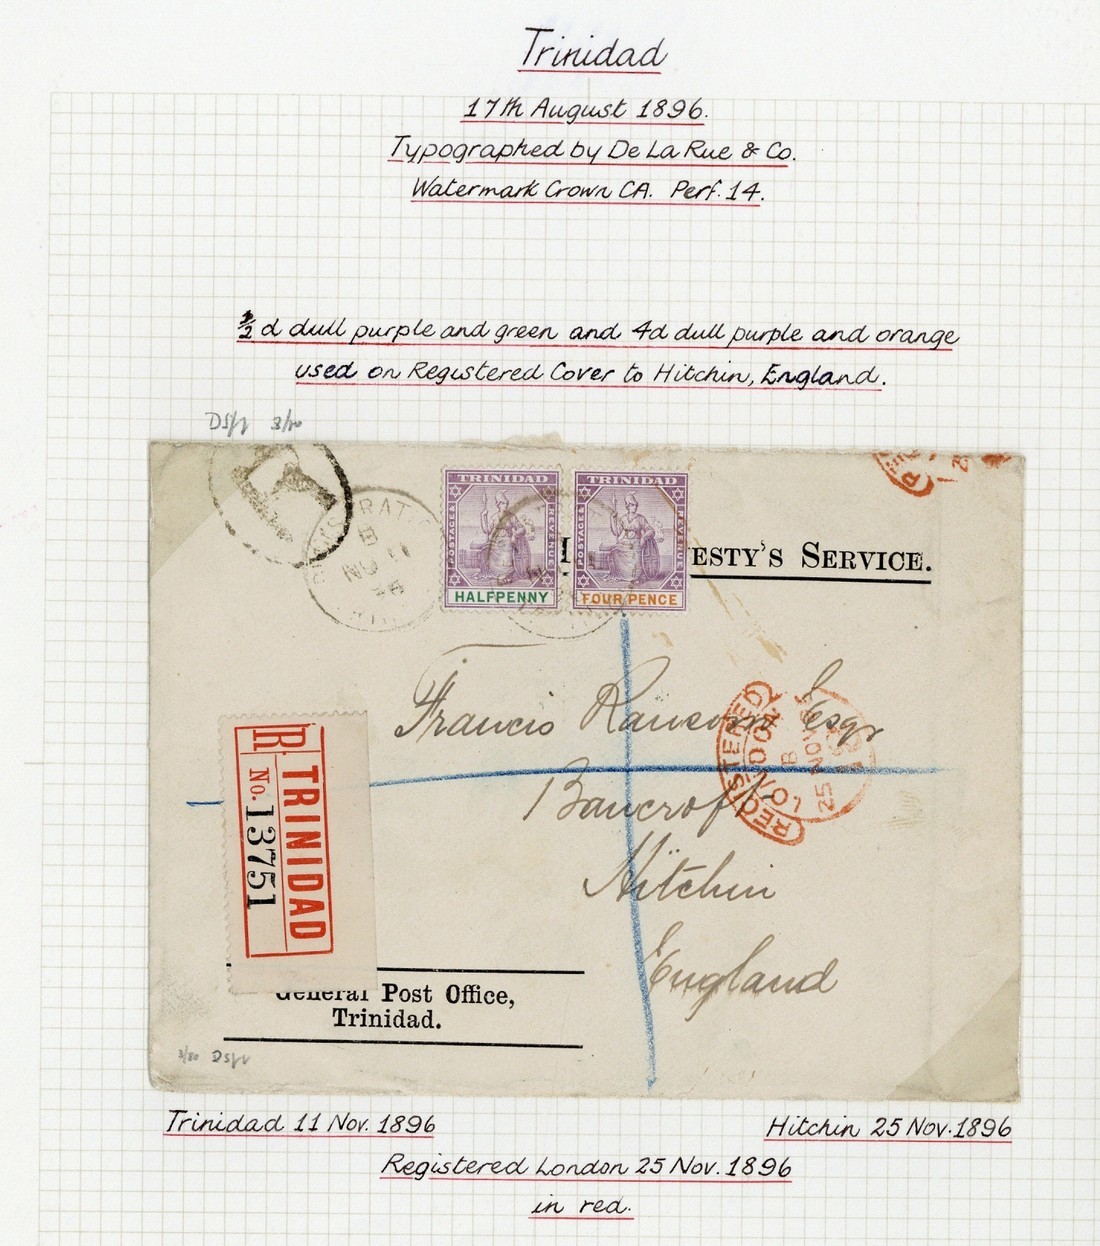 Trinidad
17th August 1896.
Typographed by De La Rue & Co.
Watermark Crown CA. Perf. 14.
½ d dull purple and green and 4d dull purple and orange
used on Registered Cover to Hitchin, England.
3/80
T
TRINIDAD
POSTAGE &
REVENUE
HALFPENNY
TRINIDAD
POSTAGE &
REVENUE
FOUR PENCE
ESTY'S SERVICE.
B
NO 11
96
Francis Ransom Esqr
Bancroft
Hitchin
England
REGISTERED
LONDON
B
25 NOV 96
R. TRINIDAD
No. 13751
General Post Office,
Trinidad.
3/80
Trinidad 11 Nov. 1896
Hitchin 25 Nov. 1896
Registered London 25 Nov. 1896
in red.